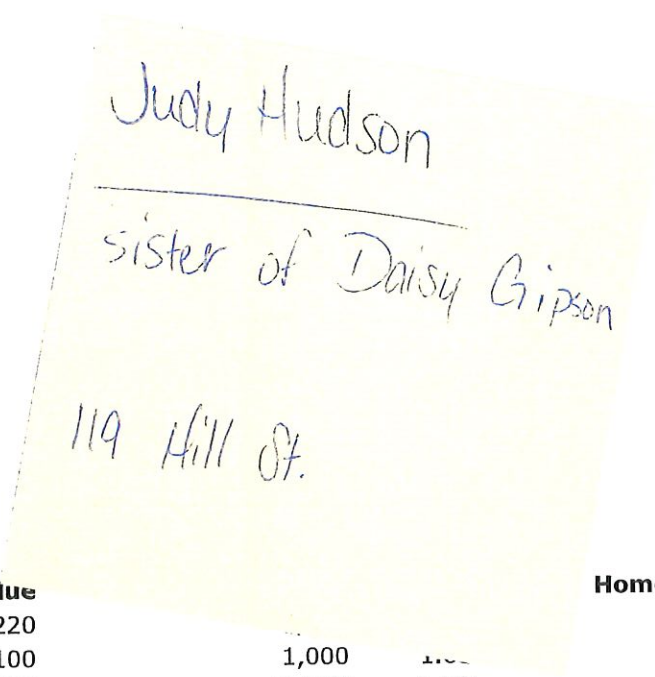 Judy Hudson
sister of Daisy Gipson
119 Hill St.
Hom
lue
220
100 1,000